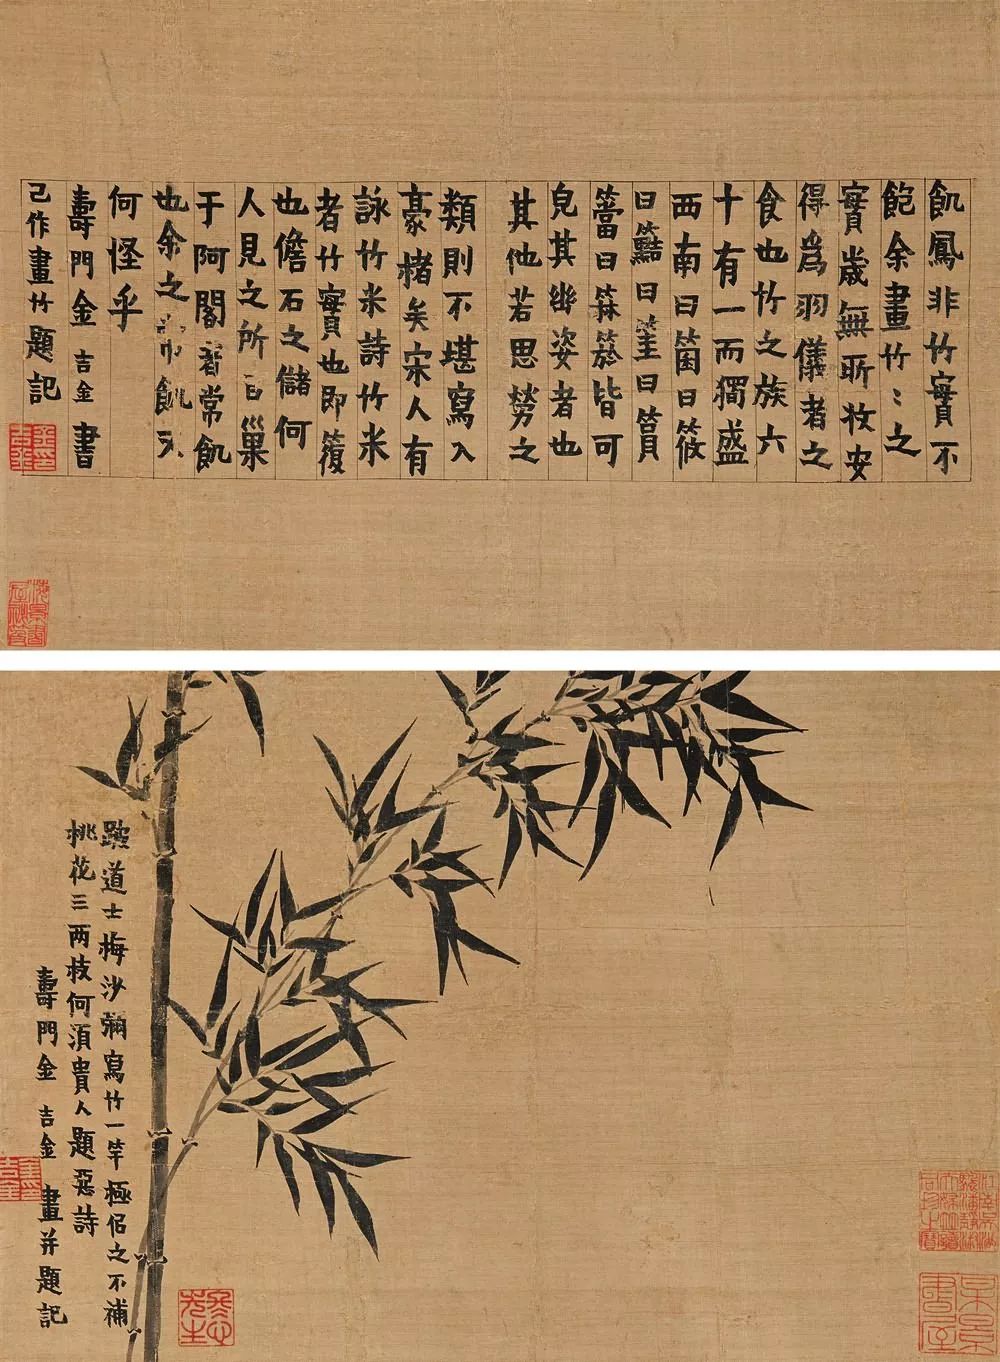 飢鳳非竹實不
飽余畫竹〻之
實歲無所收安
得為羽儀者之
食也竹之族六
十有一而獨盛
西南曰箘曰筱
曰䈏曰筀曰篔
簹曰箖箊皆可
皃其幽姿者也
其他若思簩之
類則不堪寫入
豪楮矣宋人有
詠竹米詩竹米
者竹實也即復
也儋石之儲何
人見之所言巢
于阿閣者常飢
也余之飢又
何怪乎
壽門金吉金書
己作畫竹題記
跛道士梅沙彌寫竹一竿極侶之不補
桃花三兩枝何須貴人題惡詩
壽門金吉金畫并題記
冬心先生